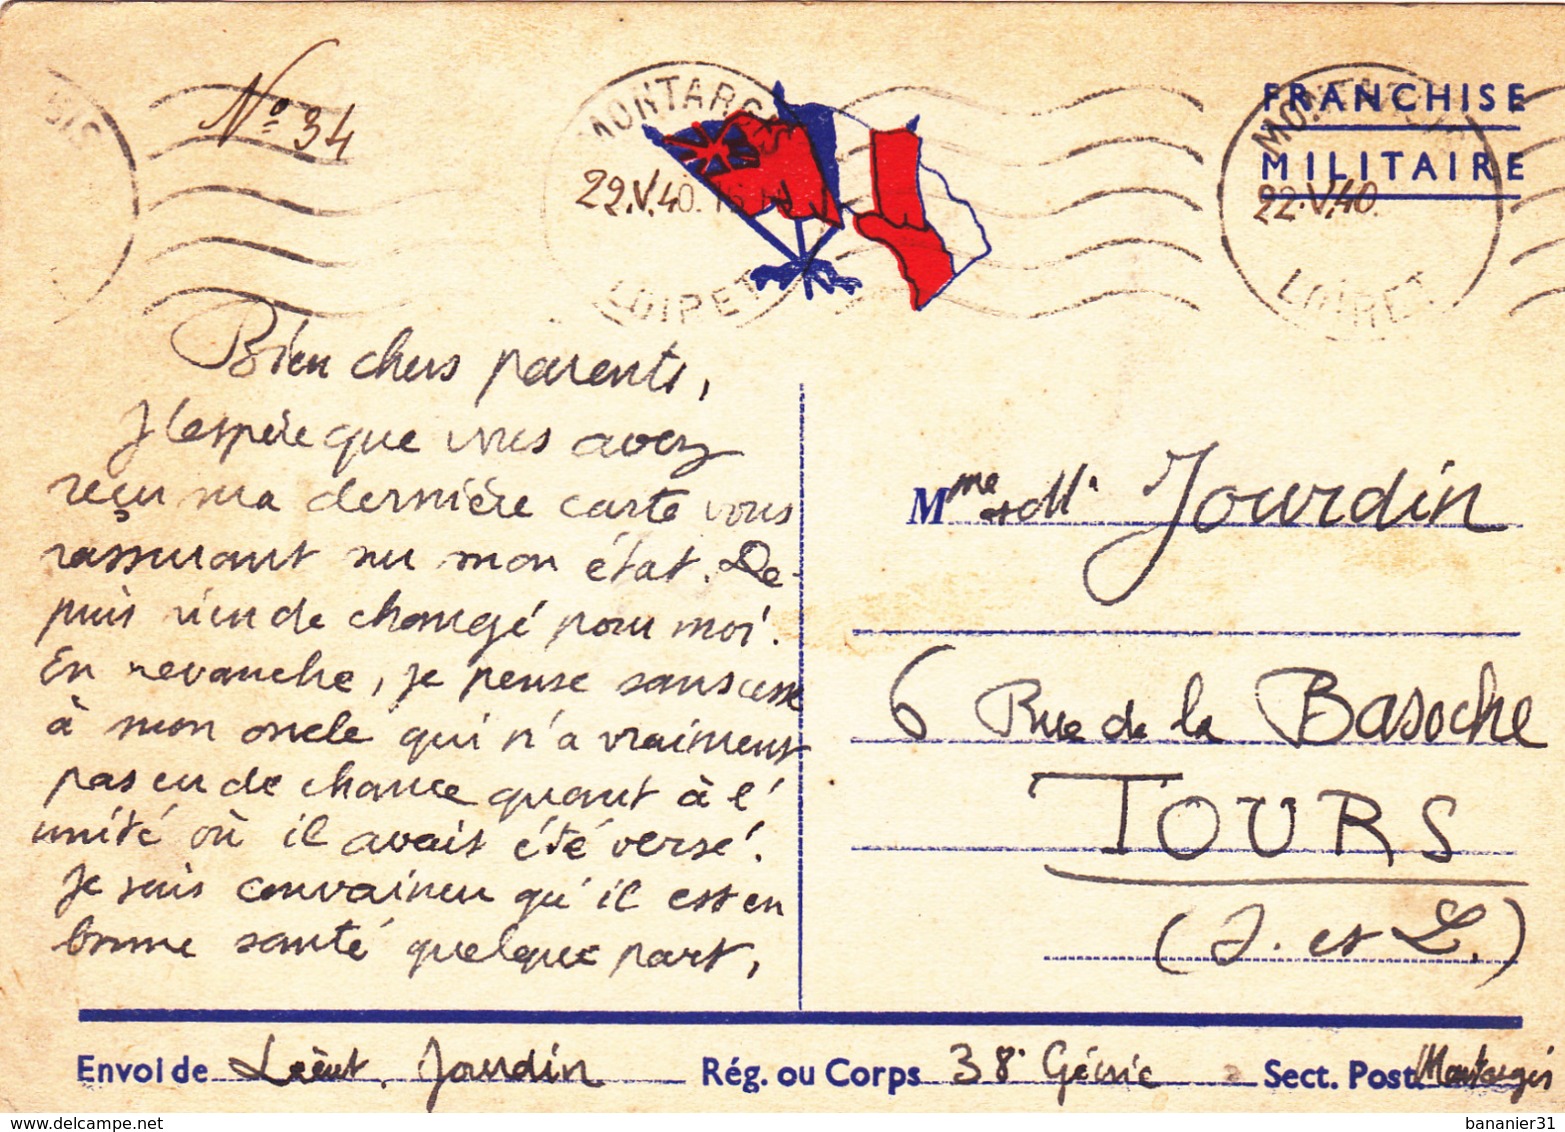 N° 34
MONTARGIS
22.V.40. 16
LOIRET
FRANCHISE
MILITAIRE
MONTARGIS
22.V.40.
LOIRET
Bien chers parents,
J'espère que vous avez
reçu ma dernière carte vous
rassurant sur mon état. De-
puis rien de changé pour moi.
En revanche, je pense sans cesse
à mon oncle qui n'a vraiment
pas eu de chance quant à l'
unité où il avait été versé.
Je suis convaincu qu'il est en
bonne santé quelque part,
Mme et M. Jourdin
6 Rue de la Basoche
TOURS
(I. et L.)
Envoi de Lieut. Jourdin Rég. ou Corps 38e Génie Sect. Post. Montargis
delcampe.net
bananier31